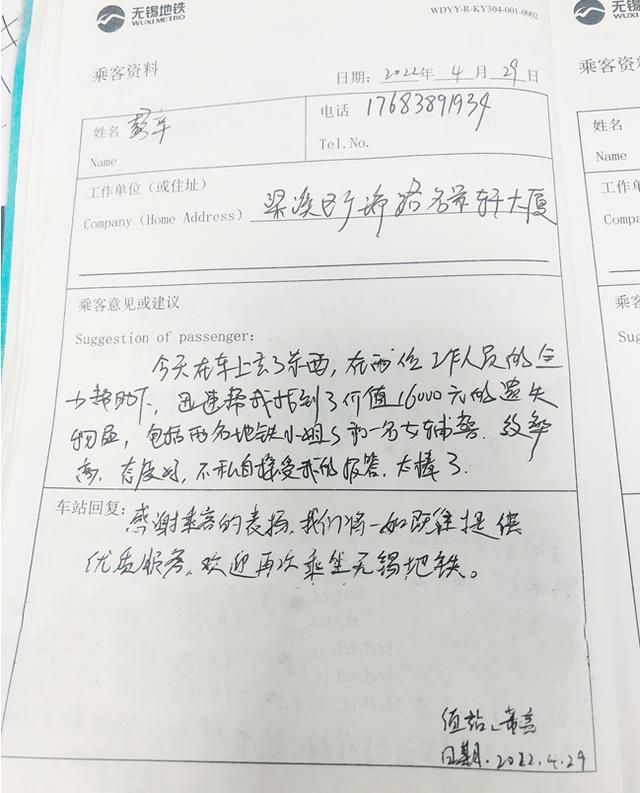 无锡地铁
WUXI METRO
WDYY-R-KY304-001-0002
无锡
WUXI
乘客资料
日期：2022年 4 月 29 日
乘客资
姓名 彭军
电话 17683891934
Name
Tel.No.
姓名
Name
工作单位（或住址）
Company（Home Address） 梁溪区 路 大厦
工作单
Compa
乘客意见或建议
Suggestion of passenger：
今天在车上丢了东西，在两位工作人员的全
力帮助下，迅速帮我找到了价值16000元的遗失
物品，包括两名地铁小姐姐和一名女辅警．效率
高．态度好，不私自接受我的报答．太棒了．
乘客
Sug
车站回复：感谢乘客的表扬，我们将一如既往提供
优质服务，欢迎再次乘坐无锡地铁。
车
值站：黄亮
日期．2022.4.29